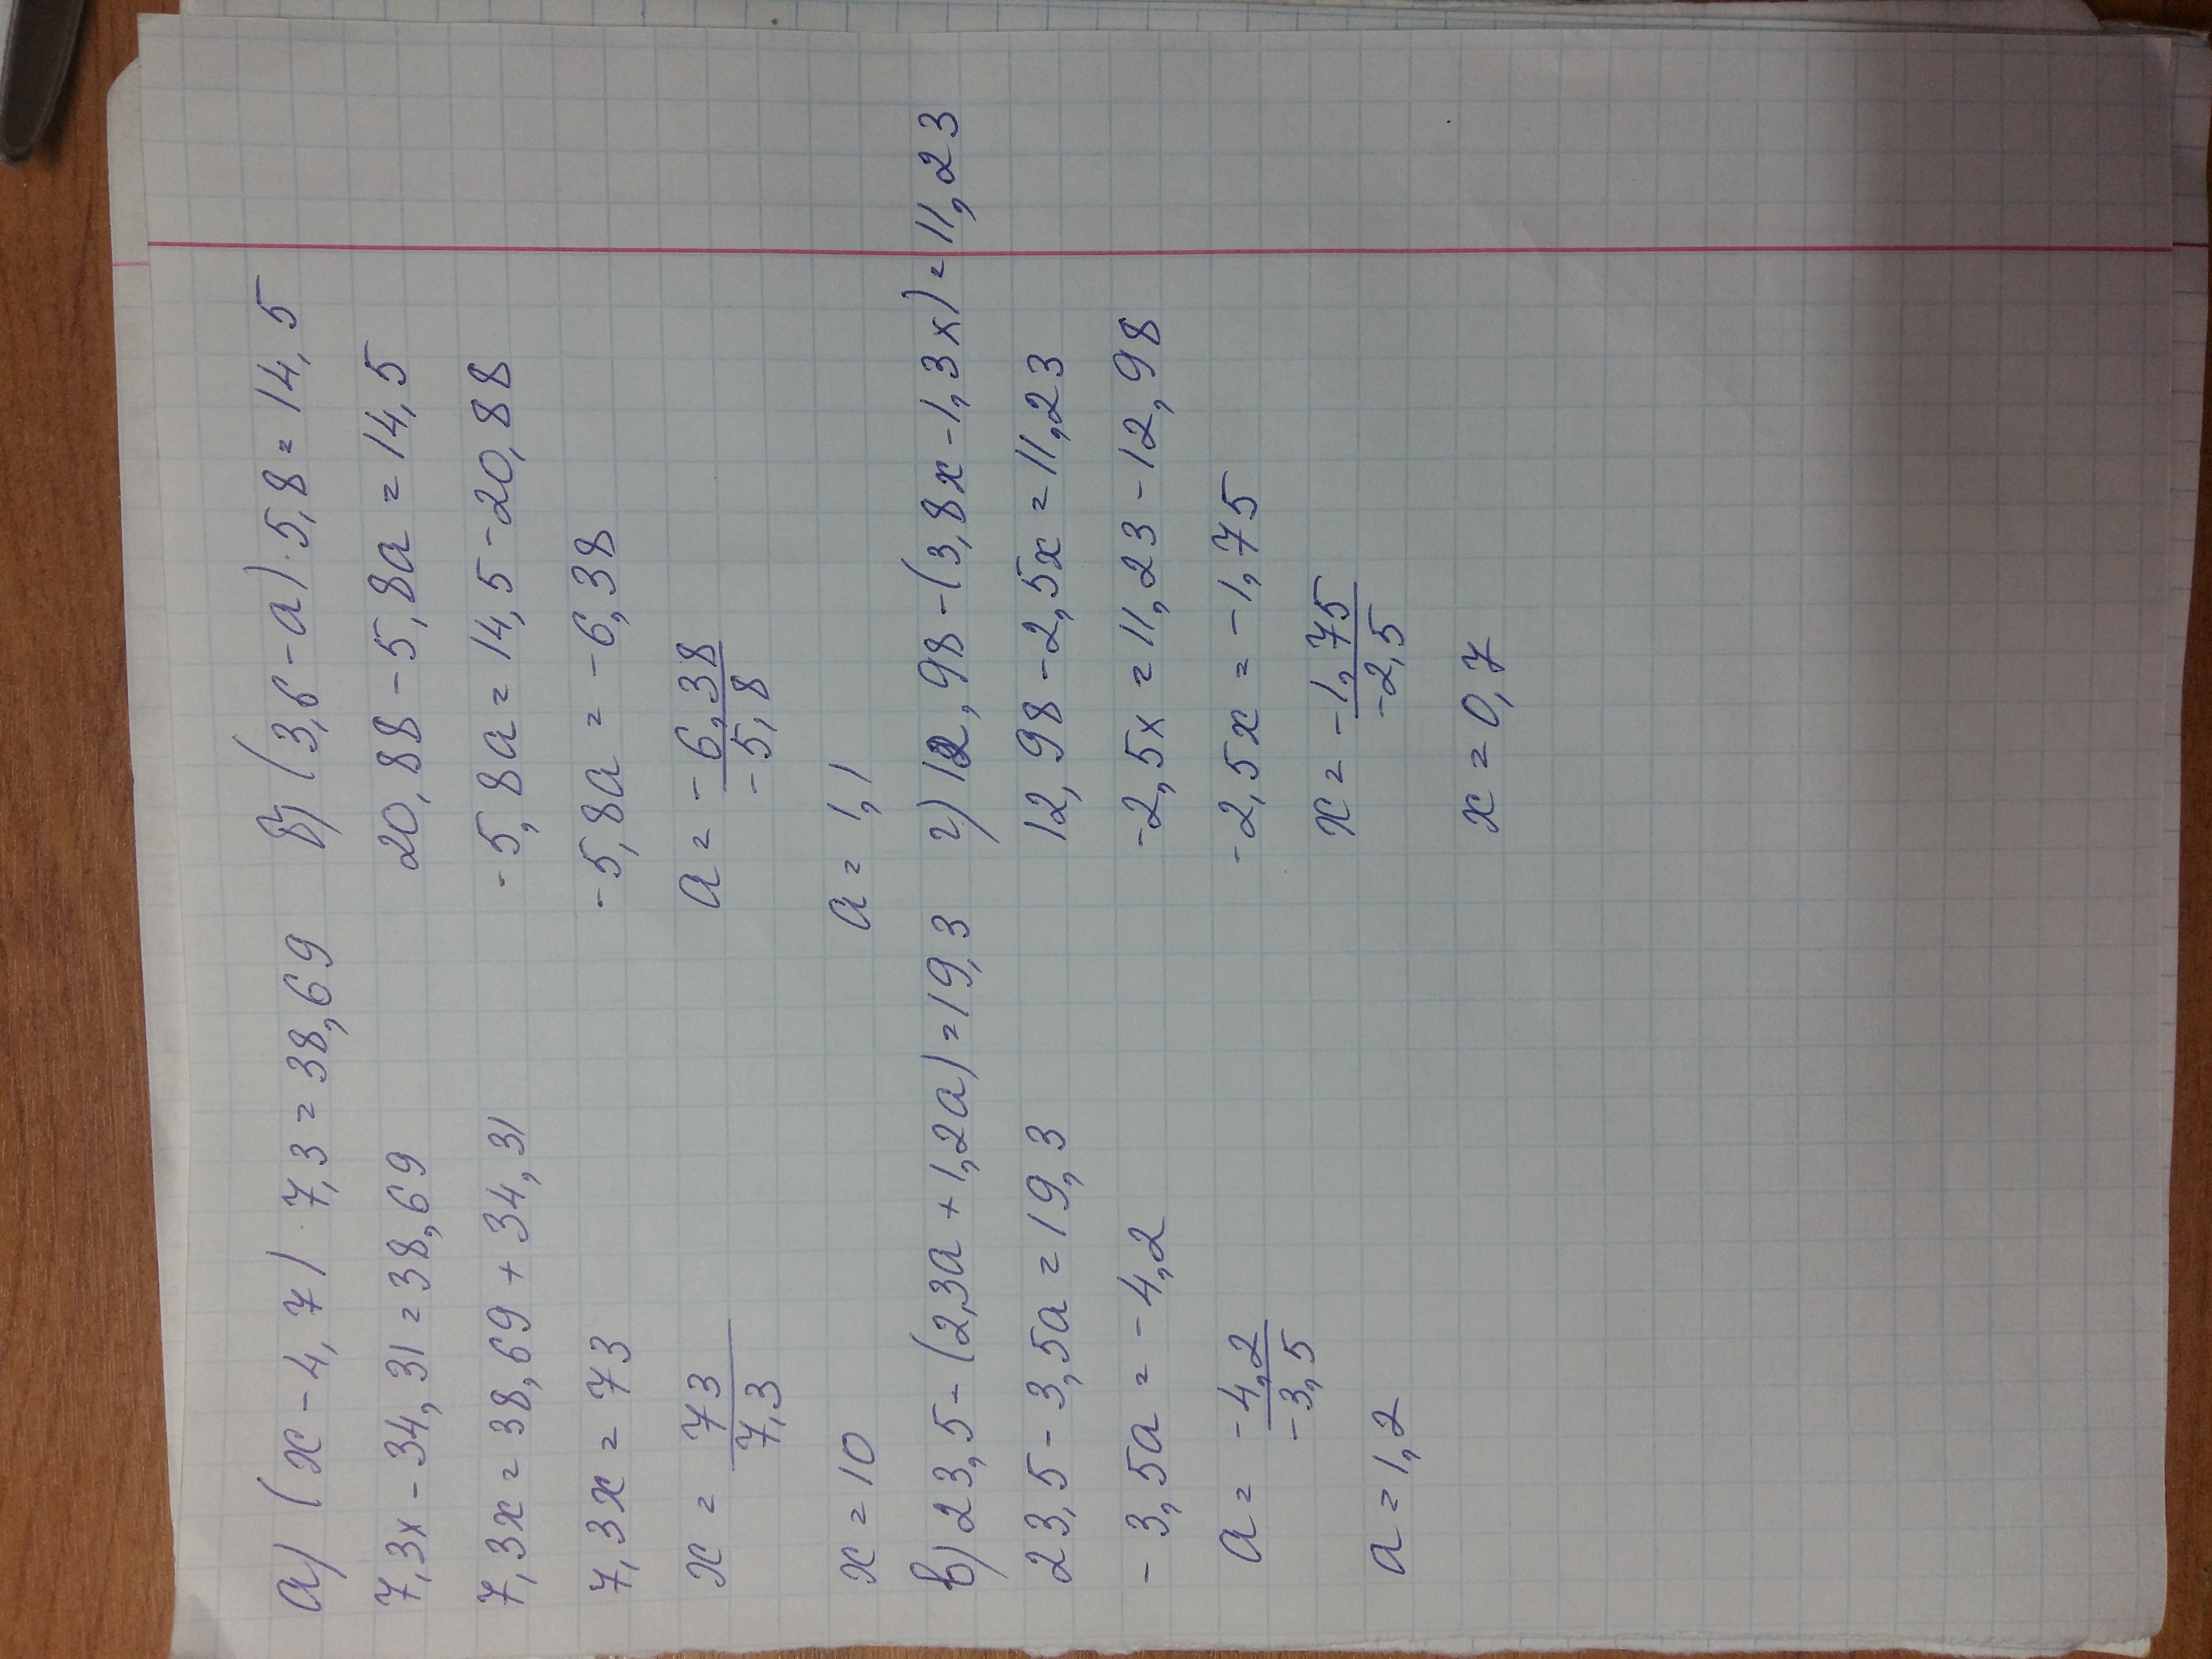 а) (x - 4,7) · 7,3 = 38,69
7,3x - 34,31 = 38,69
7,3x = 38,69 + 34,31
7,3x = 73
x = 73/7,3
x = 10
б) (3,6 - a) · 5,8 = 14,5
20,88 - 5,8a = 14,5
-5,8a = 14,5 - 20,88
-5,8a = -6,38
a = -6,38/-5,8
a = 1,1
в) 23,5 - (2,3a + 1,2a) = 19,3
23,5 - 3,5a = 19,3
-3,5a = -4,2
a = -4,2/-3,5
a = 1,2
г) 12,98 - (3,8x - 1,3x) = 11,23
12,98 - 2,5x = 11,23
-2,5x = 11,23 - 12,98
-2,5x = -1,75
x = -1,75/-2,5
x = 0,7